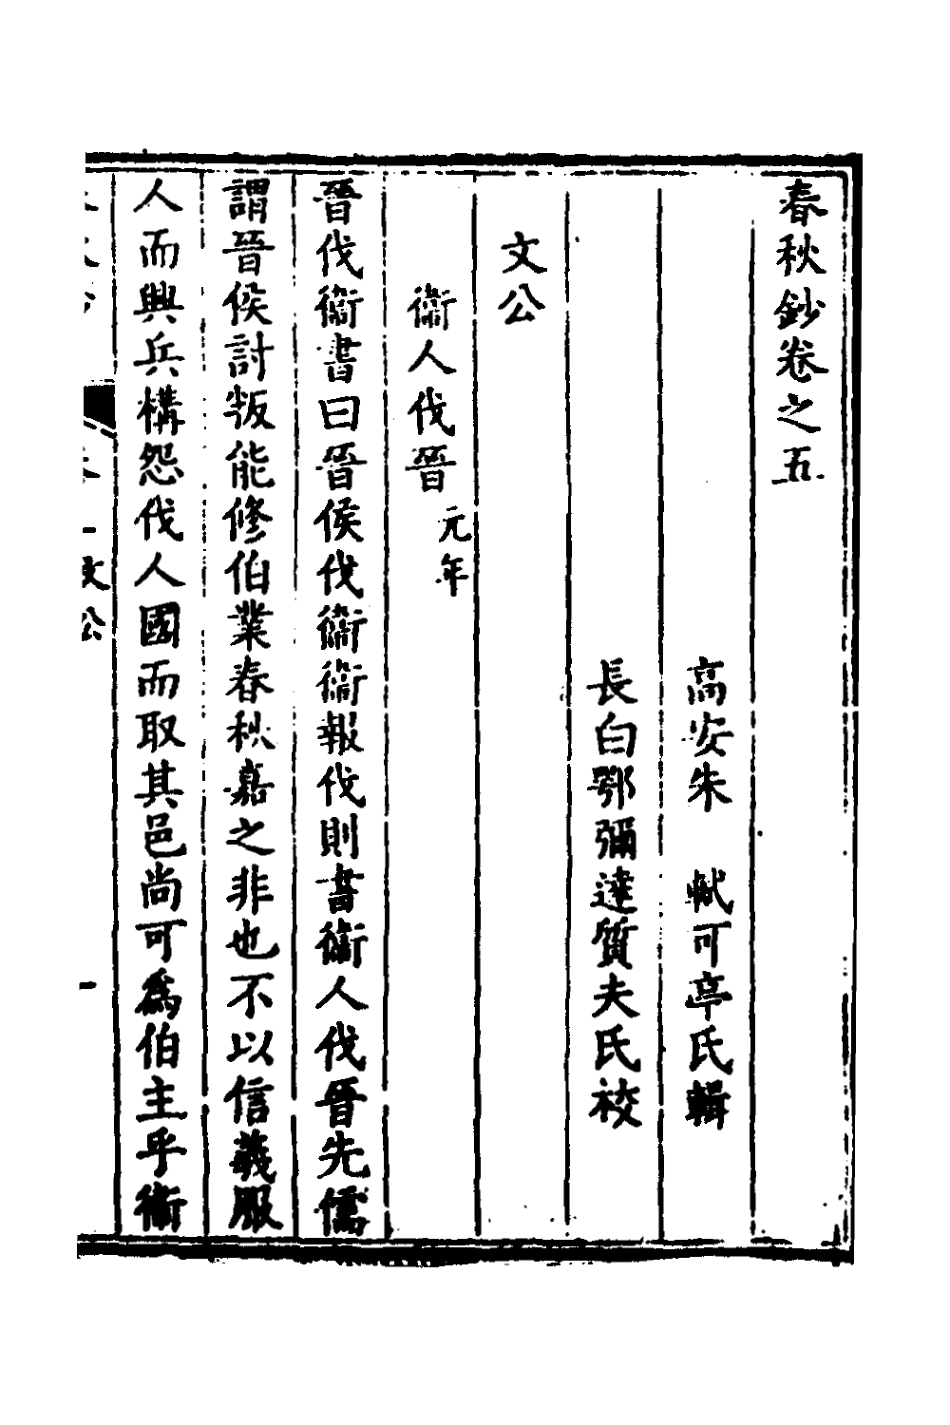 春秋鈔卷之五
高安朱　軾可亭氏輯
長白鄂彌達質夫氏校
文公
衞人伐晉元年
晉伐衞書曰晉侯伐衞衞報伐則書衞人伐晉先儒
謂晉侯討叛能修伯業春秋嘉之非也不以信義服
人而興兵構怨伐人國而取其邑尚可爲伯主乎衞